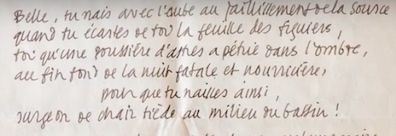 Belle, tu nais avec l'aube au jaillissement de la source
quand tu écartes de toi la feuille des figuiers,
toi qu'une poussière d'astres a pétrie dans l'ombre,
au fin fond de la nuit fatale et nourricière,
pour que tu nailles ainsi,
surgeon de chair tiède au milieu du bassin !